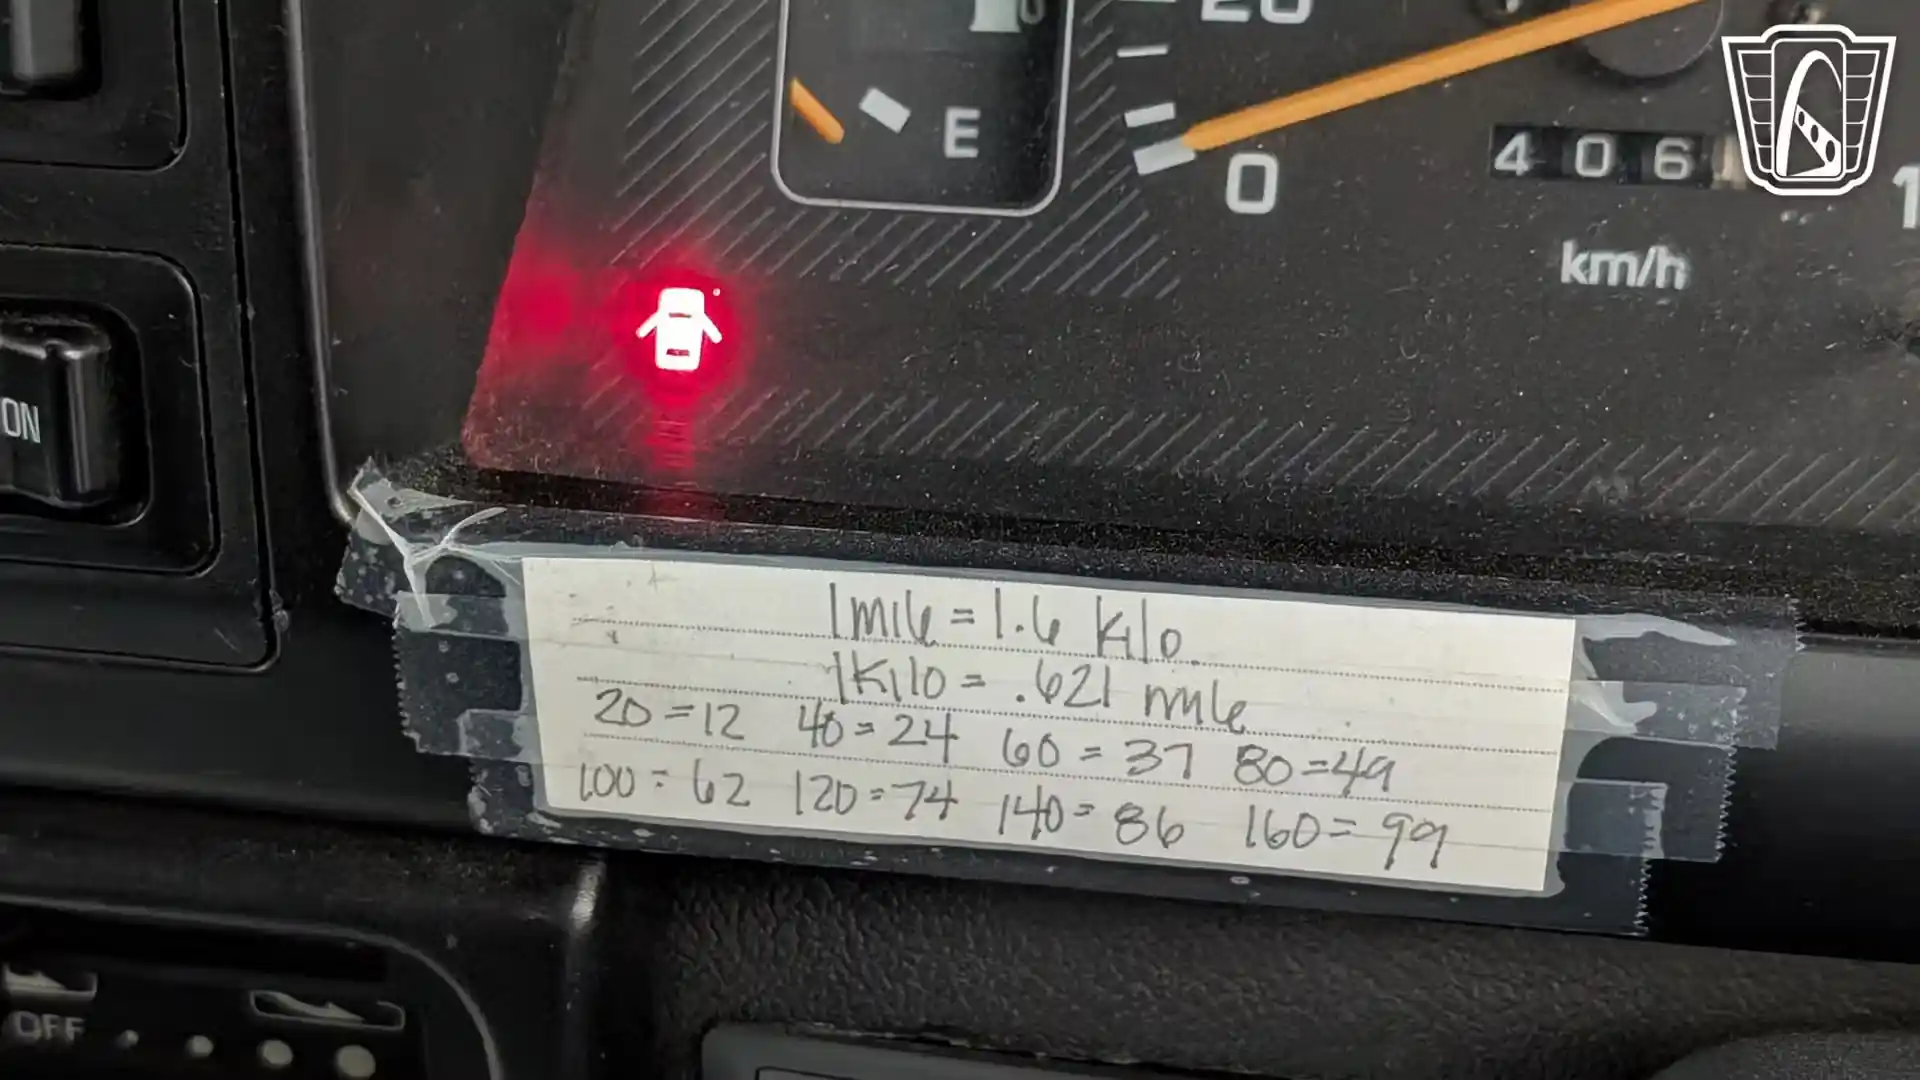 20
E
0
4 0 6
km/h
ON
1 mile = 1.6 Kilo.
1 Kilo = .621 mile
20 = 12 40 = 24 60 = 37 80 = 49
100 = 62 120 = 74 140 = 86 160 = 99
OFF